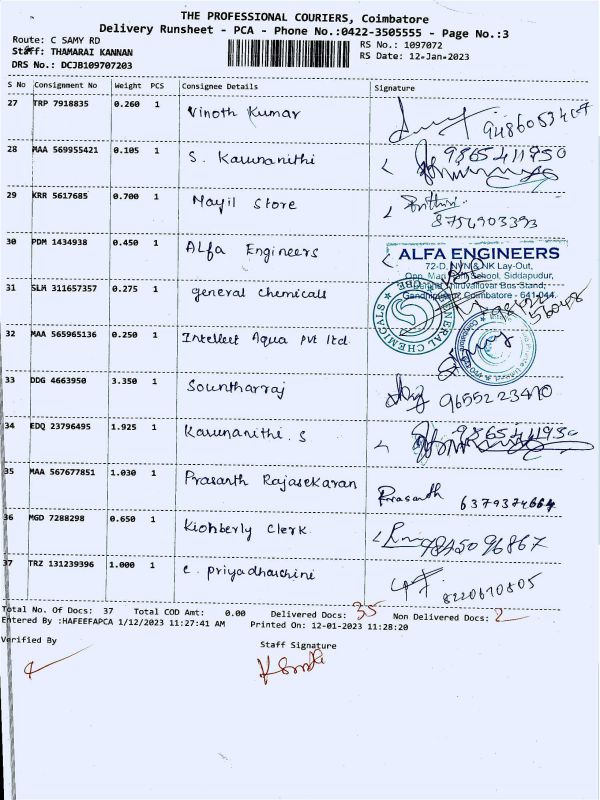 THE PROFESSIONAL COURIERS, Coimbatore
Delivery Runsheet - PCA - Phone No.:0422-3505555 - Page No.:3
Route: C SAMY RD
Staff: THAMARAI KANNAN
DRS No.: DCJB109707203
RS No.: 1097072
RS Date: 12-Jan-2023
S No Consignment No Weight PCS Consignee Details Signature
27 TRP 7918835 0.260 1 Vinoth Kumar
28 MAA 569955421 0.105 1 S. Karunanithi 9365411930
29 KRR 5617685 0.700 1 Mayil Store 8754903393
30 PDM 1434938 0.450 1 Alfa Engineers
ALFA ENGINEERS
72-D, NVN & NK Lay-Out,
School, Siddapudur,
Thiruvalluvar Bus Stand,
Gandhipuram, Coimbatore - 641 044.
31 SLM 311657357 0.275 1 general chemicals
GENERAL CHEMICALS CBE
32 MAA 565965136 0.250 1 Intellect Aqua Pvt ltd
33 DDG 4663950 3.350 1 Sountharraj 9655223470
34 EDQ 23796495 1.925 1 Karunanithi. S 9365411930
35 MAA 567677851 1.030 1 Prasanth Rajasekaran Prasanth 6379374664
36 MGD 7288298 0.650 1 Kiohberly Clerk
37 TRZ 131239396 1.000 1 C. Priyadharchini 8220610805
Total No. Of Docs: 37 Total COD Amt: 0.00 Delivered Docs: 35 Non Delivered Docs: 2
Entered By :HAFEEFAPCA 1/12/2023 11:27:41 AM Printed On: 12-01-2023 11:28:20
Verified By
Staff Signature